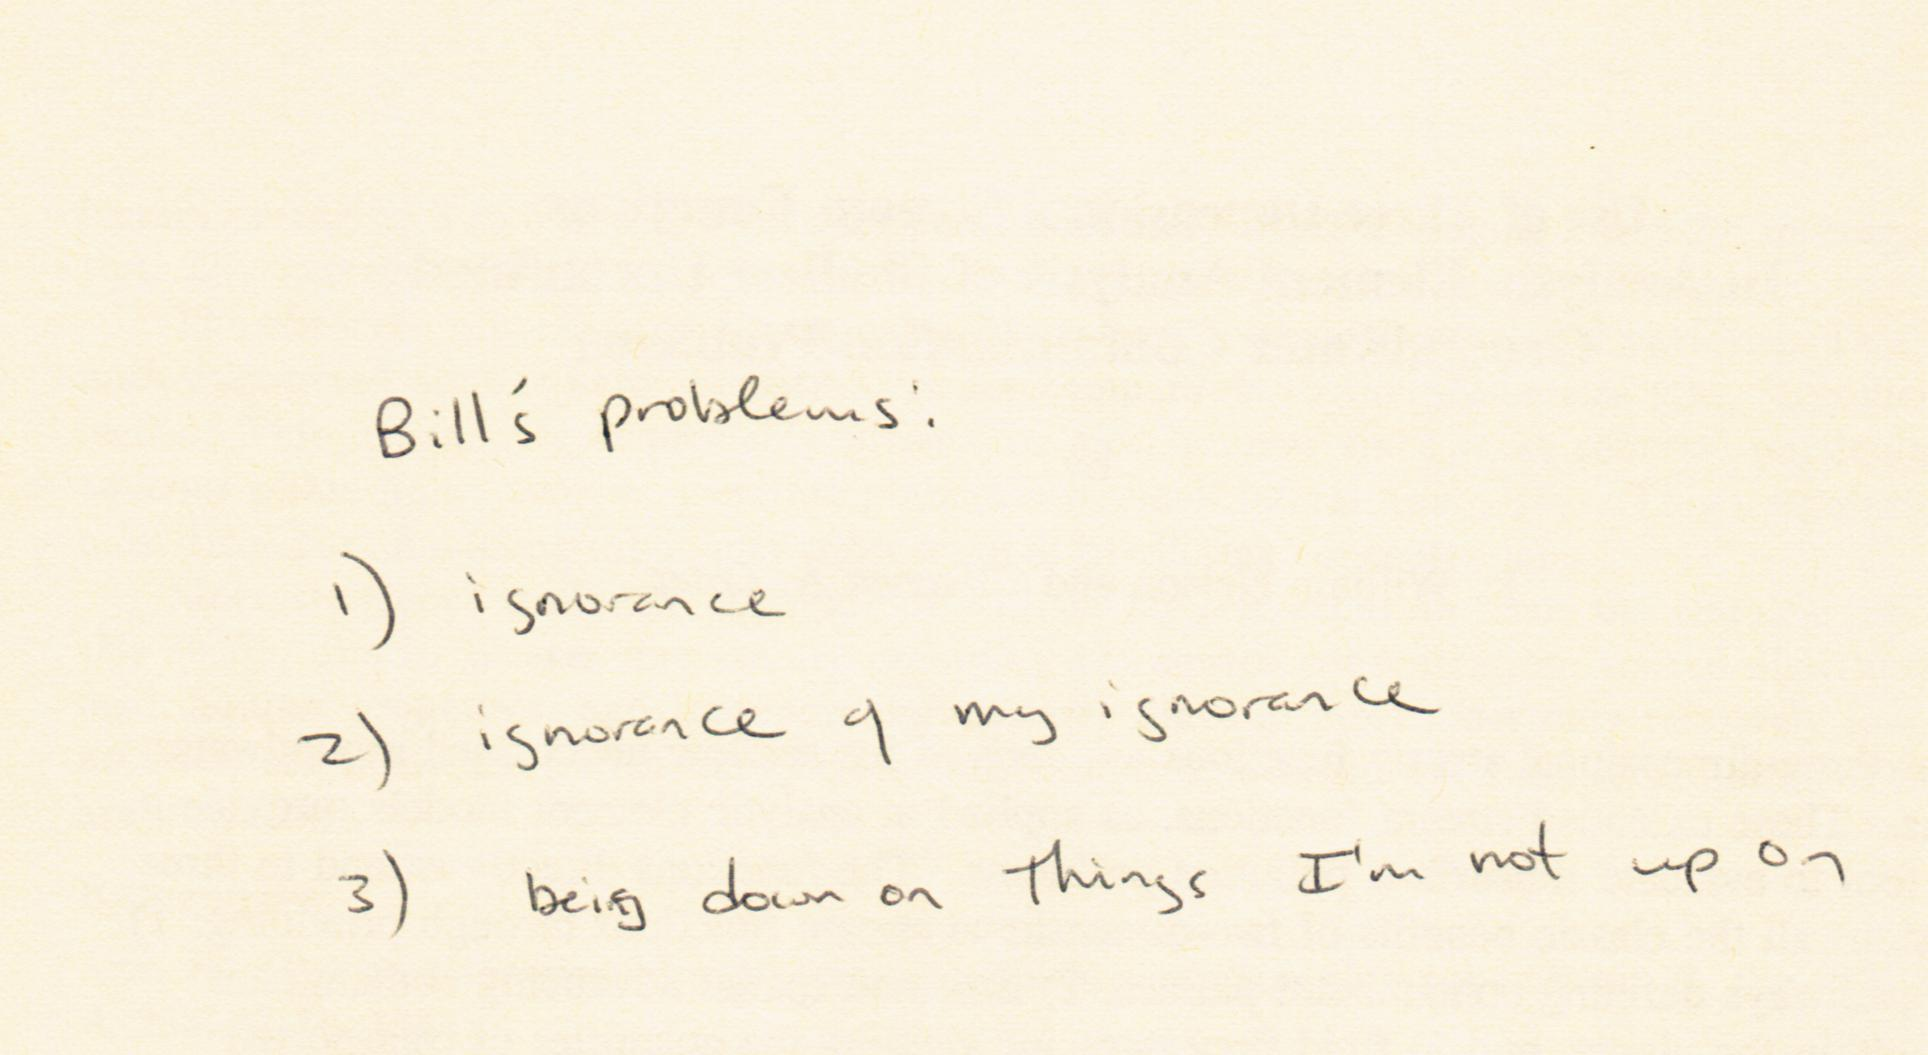 Bill's problems:
1) ignorance
2) ignorance of my ignorance
3) being down on things I'm not up on